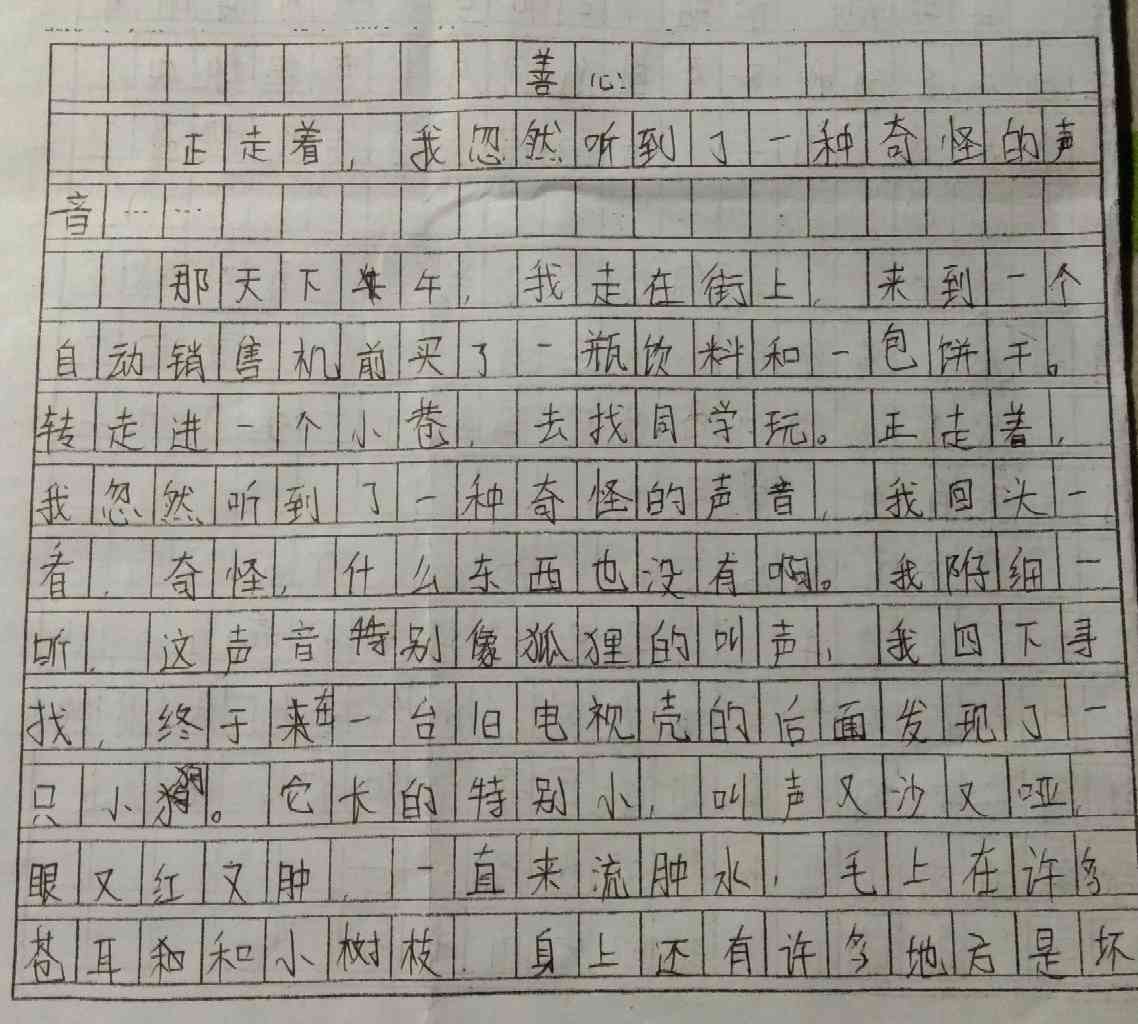 善心
正走着，我忽然听到了一种奇怪的声
音……
那天下午，我走在街上，来到一个
自动销售机前买了一瓶饮料和一包饼干。
转走进一个小巷，去找同学玩。正走着，
我忽然听到了一种奇怪的声音，我回头一
看，奇怪，什么东西也没有啊。我仔细一
听，这声音特别像狐狸的叫声，我四下寻
找，终于在一台旧电视壳的后面发现了一
只小狗。它长的特别小，叫声又沙又哑，
眼又红又肿，一直来流肿水，毛上在许多
苍耳和小树枝，身上还有许多地方是坏